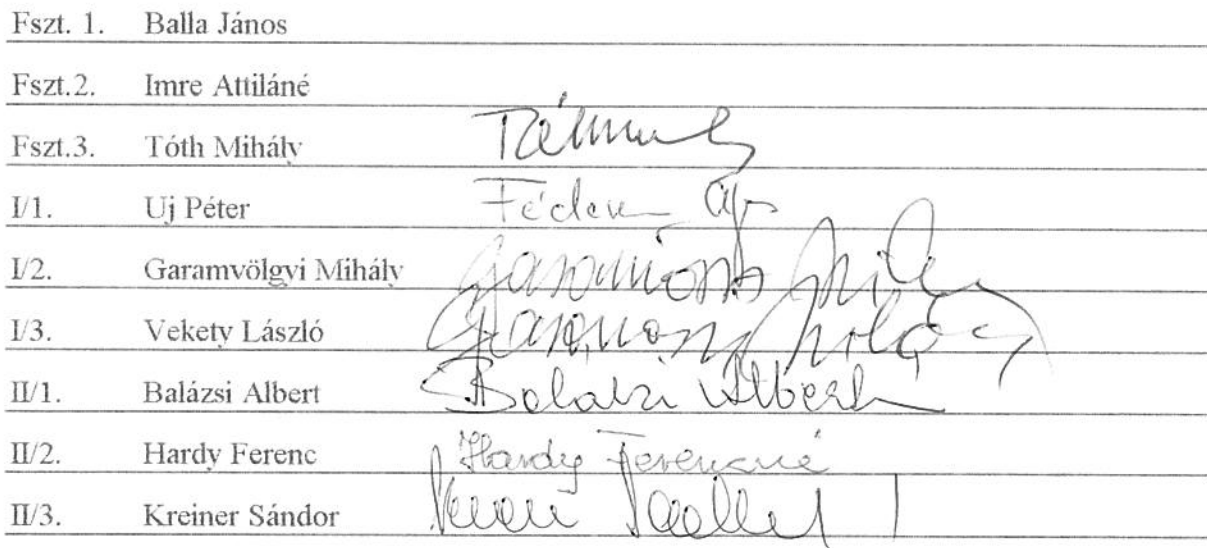 Fszt. 1. Balla János
Fszt.2. Imre Attiláné
Fszt.3. Tóth Mihály
I/1. Uj Péter
I/2. Garamvölgyi Mihály
I/3. Vekety László
II/1. Balázsi Albert Balázsi Albert
II/2. Hardy Ferenc Hardy Ferencné
II/3. Kreiner Sándor